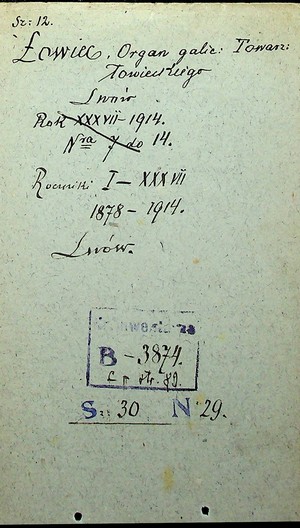 Sz: 12.
Łowiec, Organ galic: Towarz:
Łowieckiego
Lwów
Rok XXXVII-1914.
Nra 7 do 14.
Roczniki I-XXXVII
1878-1914.
Lwów.
B-3874.
str. 89.
Sz: 30 N 29.